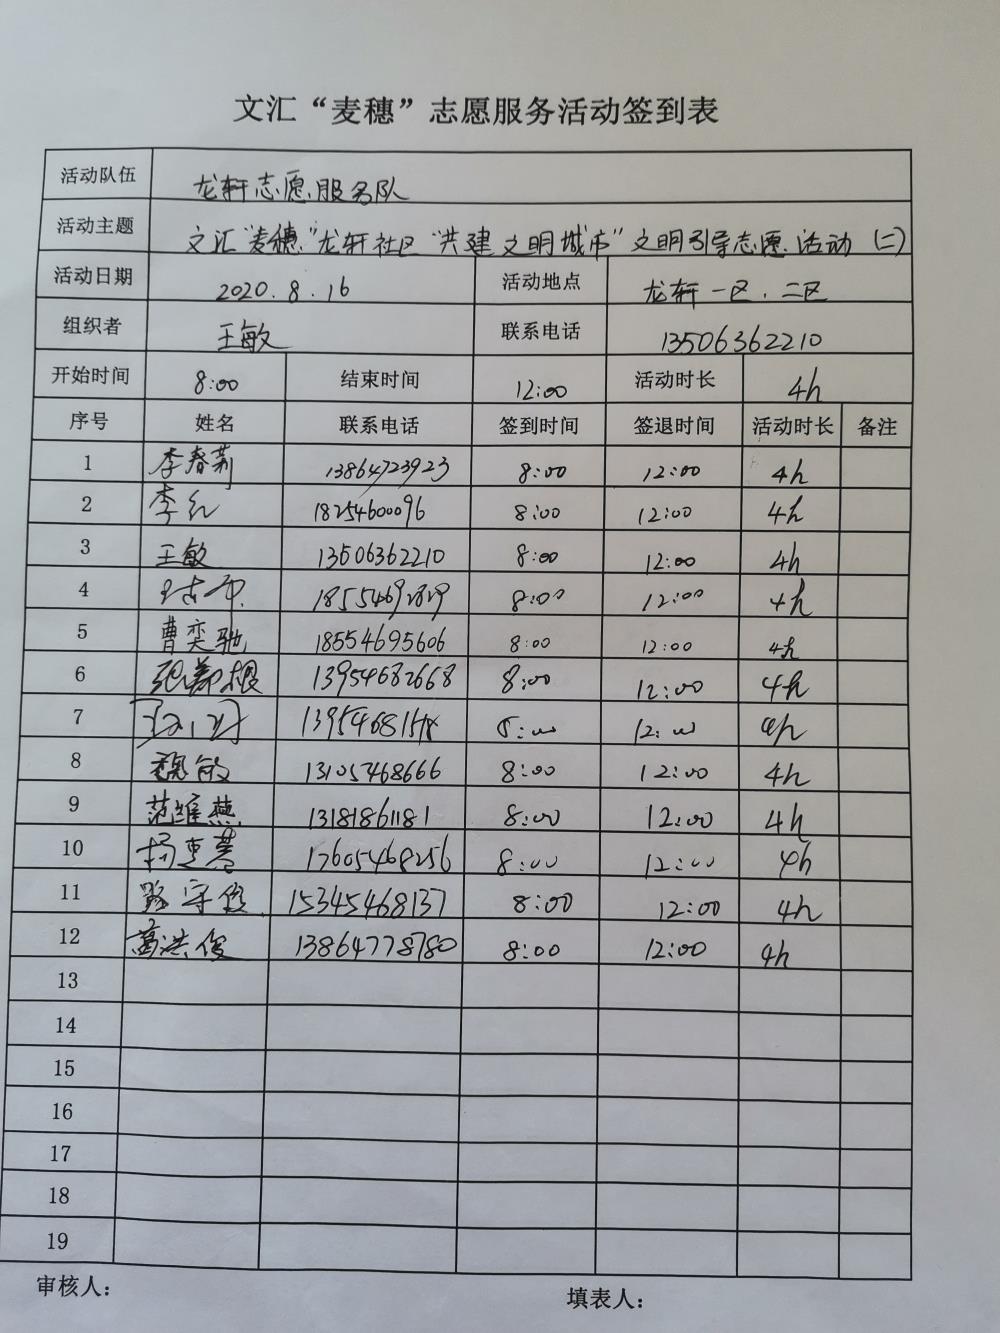 文汇“麦穗”志愿服务活动签到表
活动队伍 龙轩志愿服务队
活动主题 文汇“麦穗”龙轩社区“共建文明城市”文明引导志愿活动(二)
活动日期 2020.8.16 活动地点 龙轩一区.二区
组织者 王敏 联系电话 13506362210
开始时间 8:00 结束时间 12:00 活动时长 4h
序号 姓名 联系电话 签到时间 签退时间 活动时长 备注
1 李春莉 13864723923 8:00 12:00 4h
2 李红 18254600096 8:00 12:00 4h
3 王敏 13506362210 8:00 12:00 4h
4 8:00 12:00 4h
5 曹奕驰 18554695606 8:00 12:00 4h
6 13954682668 8:00 12:00 4h
7 8:00 12:00 4h
8 魏敏 13105468666 8:00 12:00 4h
9 范维燕 13181861181 8:00 12:00 4h
10 17605468256 8:00 12:00 4h
11 路守俊 15345468137 8:00 12:00 4h
12 葛洪俊 13864778780 8:00 12:00 4h
13
14
15
16
17
18
19
审核人: 填表人: